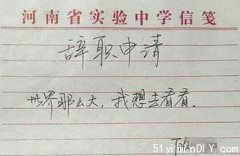 河南省实验中学信笺
辞职申请
世界那么大,我想去看看。
51yiminDIY.com